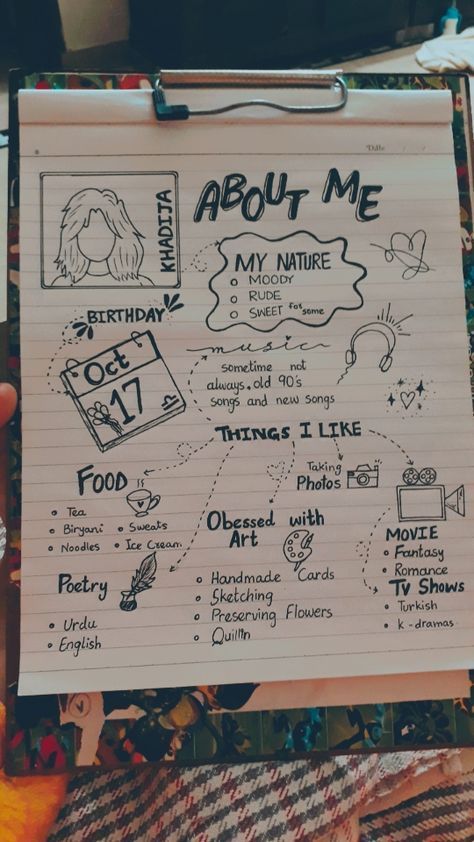 Date
KHADIJA
ABOUT ME
MY NATURE
MOODY
RUDE
SWEET for some
BIRTHDAY
Oct
17
music
sometime not
always. old 90's
songs and new songs
THINGS I LIKE
FOOD
Tea
Biryani
Noodles
Sweats
Ice Cream
Taking
Photos
Obsessed with
Art
Handmade Cards
Sketching
Preserving Flowers
MOVIE
Fantasy
Romance
TV Shows
Turkish
k-dramas
Poetry
Urdu
English